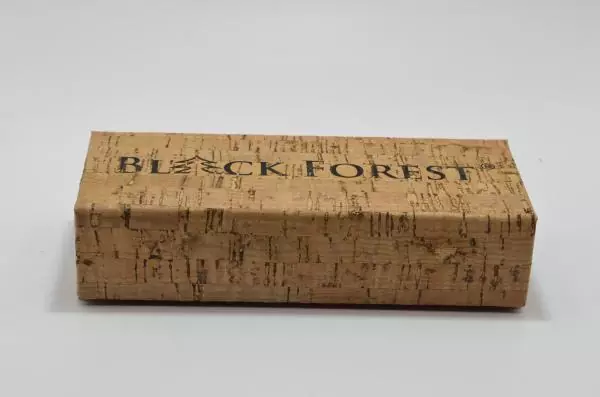 BLACK FOREST®